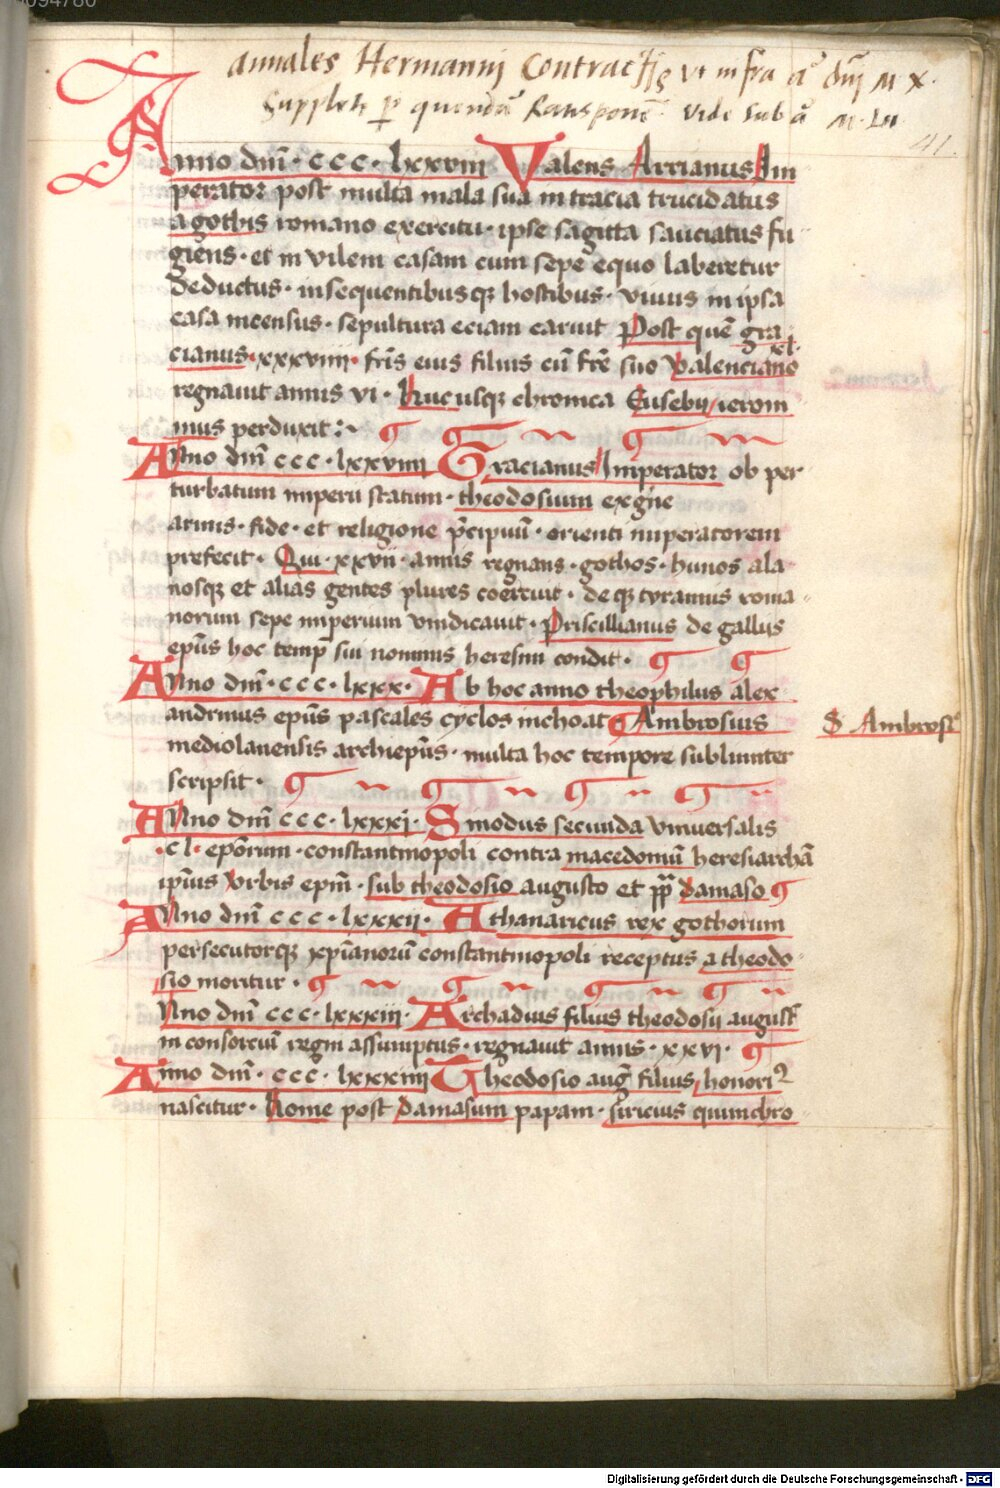 annales Hermannj Contractj vt infra a° dnj M X.
Supplet. p quendā Ratisponē. vide sub a° M. Lu
41.
Anno dnī · c c c · lxxviii Valens Arrianus Im
perator post multa mala sua in tracia trucidatus
a gothis romano exercitu · ipse sagitta sauciatus fu
giens · et in vilem casam cum sepe equo laberetur
deductus · insequentibusqz hostibus · viuus in ipsa
casa incensus · sepultura eciam caruit Post quē gra
cianus · xxxviiii · fr̄is eius filius cū fr̄e suo valenciano
regnauit annis vi · Huc usqz chronica Eusebij ieroni
mus perduxit :~
Anno dnī c c c · lxxviiii Gracianus Imperator ob per
turbatum imperii statum · theodosium exgñe
armis · fide · et religione p̄cipuū · orienti imperatorem
prefecit · Qui · xxvii · annis regnans · gothos · hunos ala
nosqz et alias gentes plures coercuit · deqz tyrannis roma
norum sepe imperium vindicauit · Priscillianus de gallijs
ep̄us hoc temp̄ sui nominis heresim condit ·
Anno dnī · c c c · lxxx · Ab hoc anno theophilus alex
andrinus ep̄us pascales cyclos inchoat Ambrosius
S Ambrosi9
mediolanensis archiep̄us · multa hoc tempore sublimiter
scripsit ·
Anno dnī c c c · lxxxi · Sinodus secunda vniuersalis
· c l · ep̄orum · constantinopoli contra macedoniū heresiarchā
ip̄ius vrbis ep̄m · sub theodosio augusto et pp̄ damaso
Anno dnī c c c · lxxxii · Athanaricus rex gothorum
persecutorqz xp̄ianorū constantinopoli receptus a theodo
sio moritur ·
Anno dnī c c c · lxxxiii · Archadius filius theodosij august̄
in consorciū regni assumptus · regnauit annis · xxvi ·
Anno dnī · c c c · lxxxiiii Theodosio aug̅ filius honori9
nascitur · Rome post damasum papam · siricius quinchro
Digitalisierung gefördert durch die Deutsche Forschungsgemeinschaft - DFG